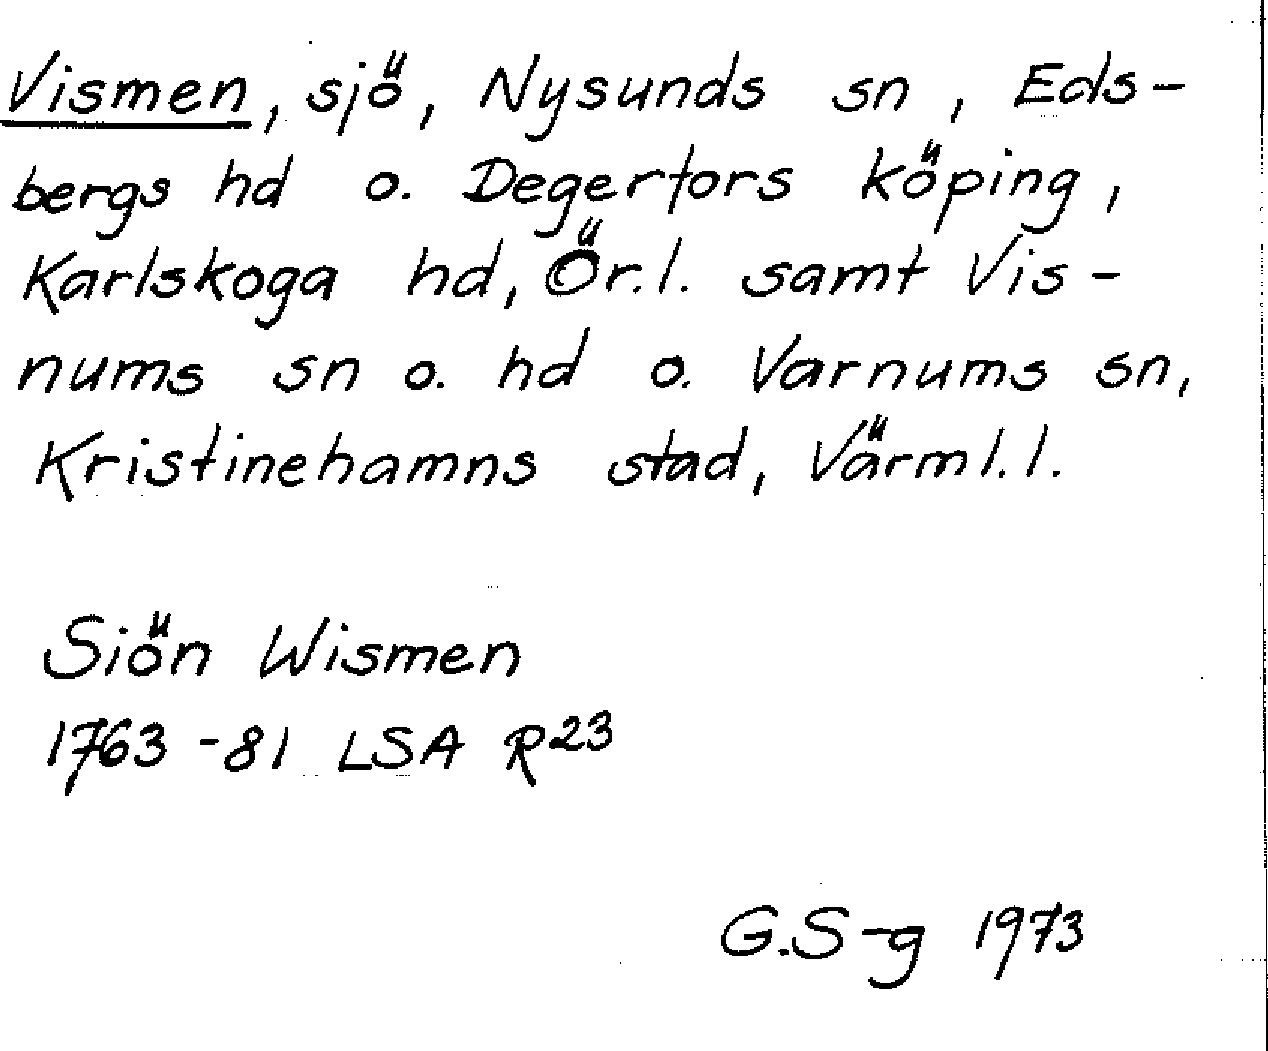 Vismen, sjö, Nysunds sn, Eds-
bergs hd o. Degerfors köping,
Karlskoga hd, Ör.l. samt Vis-
nums sn o. hd o. Varnums sn,
Kristinehamns stad, Värml.l.
Siön Wismen
1763-81 LSA R23
G.S-g 1973